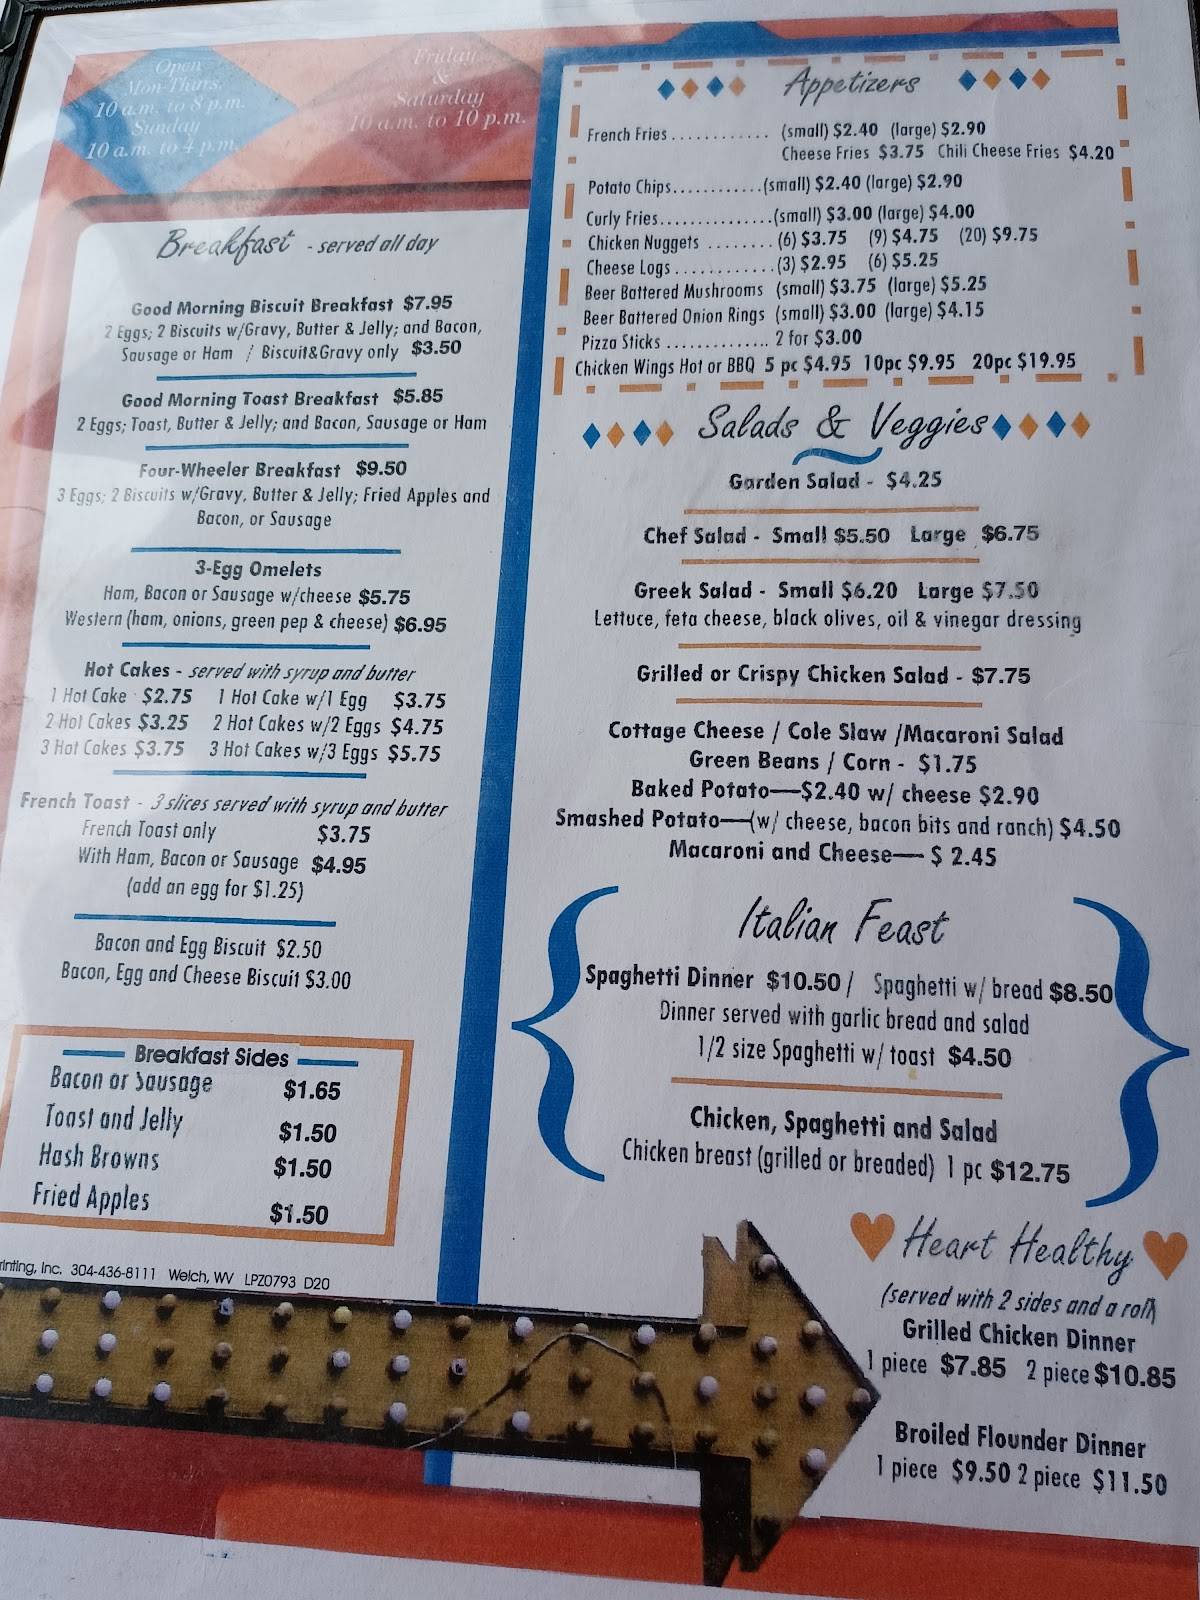 Open
Mon-Thurs.
10 a.m. to 8 p.m.
Sunday
10 a.m. to 4 p.m.
Friday
&
Saturday
10 a.m. to 10 p.m.
Breakfast - served all day
Good Morning Biscuit Breakfast $7.95
2 Eggs; 2 Biscuits w/Gravy, Butter & Jelly; and Bacon,
Sausage or Ham / Biscuit&Gravy only $3.50
Good Morning Toast Breakfast $5.85
2 Eggs; Toast, Butter & Jelly; and Bacon, Sausage or Ham
Four-Wheeler Breakfast $9.50
3 Eggs; 2 Biscuits w/Gravy, Butter & Jelly; Fried Apples and
Bacon, or Sausage
3-Egg Omelets
Ham, Bacon or Sausage w/cheese $5.75
Western (ham, onions, green pep & cheese) $6.95
Hot Cakes - served with syrup and butter
1 Hot Cake $2.75 1 Hot Cake w/1 Egg $3.75
2 Hot Cakes $3.25 2 Hot Cakes w/2 Eggs $4.75
3 Hot Cakes $3.75 3 Hot Cakes w/3 Eggs $5.75
French Toast - 3 slices served with syrup and butter
French Toast only $3.75
With Ham, Bacon or Sausage $4.95
(add an egg for $1.25)
Bacon and Egg Biscuit $2.50
Bacon, Egg and Cheese Biscuit $3.00
Breakfast Sides
Bacon or Sausage $1.65
Toast and Jelly $1.50
Hash Browns $1.50
Fried Apples $1.50
rinting, Inc. 304-436-8111 Welch, WV LPZ0793 D20
Appetizers
French Fries ............ (small) $2.40 (large) $2.90
Cheese Fries $3.75 Chili Cheese Fries $4.20
Potato Chips............(small) $2.40 (large) $2.90
Curly Fries...............(small) $3.00 (large) $4.00
Chicken Nuggets ........ (6) $3.75 (9) $4.75 (20) $9.75
Cheese Logs ............ (3) $2.95 (6) $5.25
Beer Battered Mushrooms (small) $3.75 (large) $5.25
Beer Battered Onion Rings (small) $3.00 (large) $4.15
Pizza Sticks ............. 2 for $3.00
Chicken Wings Hot or BBQ 5 pc $4.95 10pc $9.95 20pc $19.95
Salads & Veggies
Garden Salad - $4.25
Chef Salad - Small $5.50 Large $6.75
Greek Salad - Small $6.20 Large $7.50
Lettuce, feta cheese, black olives, oil & vinegar dressing
Grilled or Crispy Chicken Salad - $7.75
Cottage Cheese / Cole Slaw /Macaroni Salad
Green Beans / Corn - $1.75
Baked Potato—$2.40 w/ cheese $2.90
Smashed Potato—(w/ cheese, bacon bits and ranch) $4.50
Macaroni and Cheese— $ 2.45
Italian Feast
Spaghetti Dinner $10.50 / Spaghetti w/ bread $8.50
Dinner served with garlic bread and salad
1/2 size Spaghetti w/ toast $4.50
Chicken, Spaghetti and Salad
Chicken breast (grilled or breaded) 1 pc $12.75
Heart Healthy
(served with 2 sides and a roll)
Grilled Chicken Dinner
1 piece $7.85 2 piece $10.85
Broiled Flounder Dinner
1 piece $9.50 2 piece $11.50